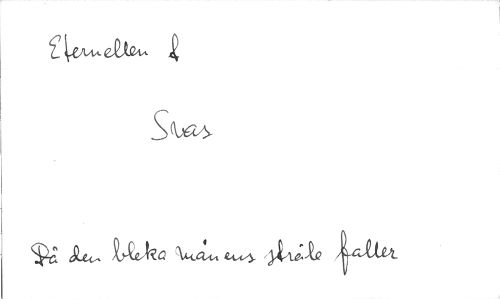 Eternellen &
Svas
Då den bleka månens stråle faller